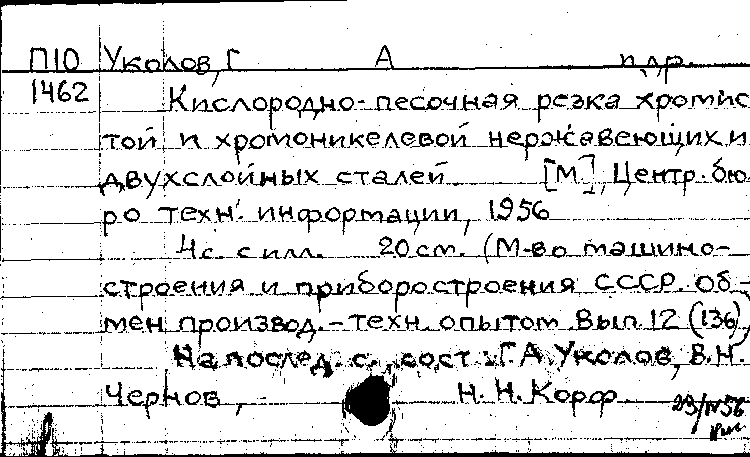 П10 Уколов, Г А и др.
1462 Кислородно-песочная резка хромис
той и хромоникелевой нержавеющих и
двухслойных сталей. [М], Центр. бю
ро техн. информации, 1956
4 с. с илл. 20 см. (М-во машино-
строения и приборостроения СССР. Об-
мен производ.-техн. опытом Вып. 12 (136),
На послед. с. сост.: Г.А. Уколов, В.Н.
Чернов, Н. Н. Корф